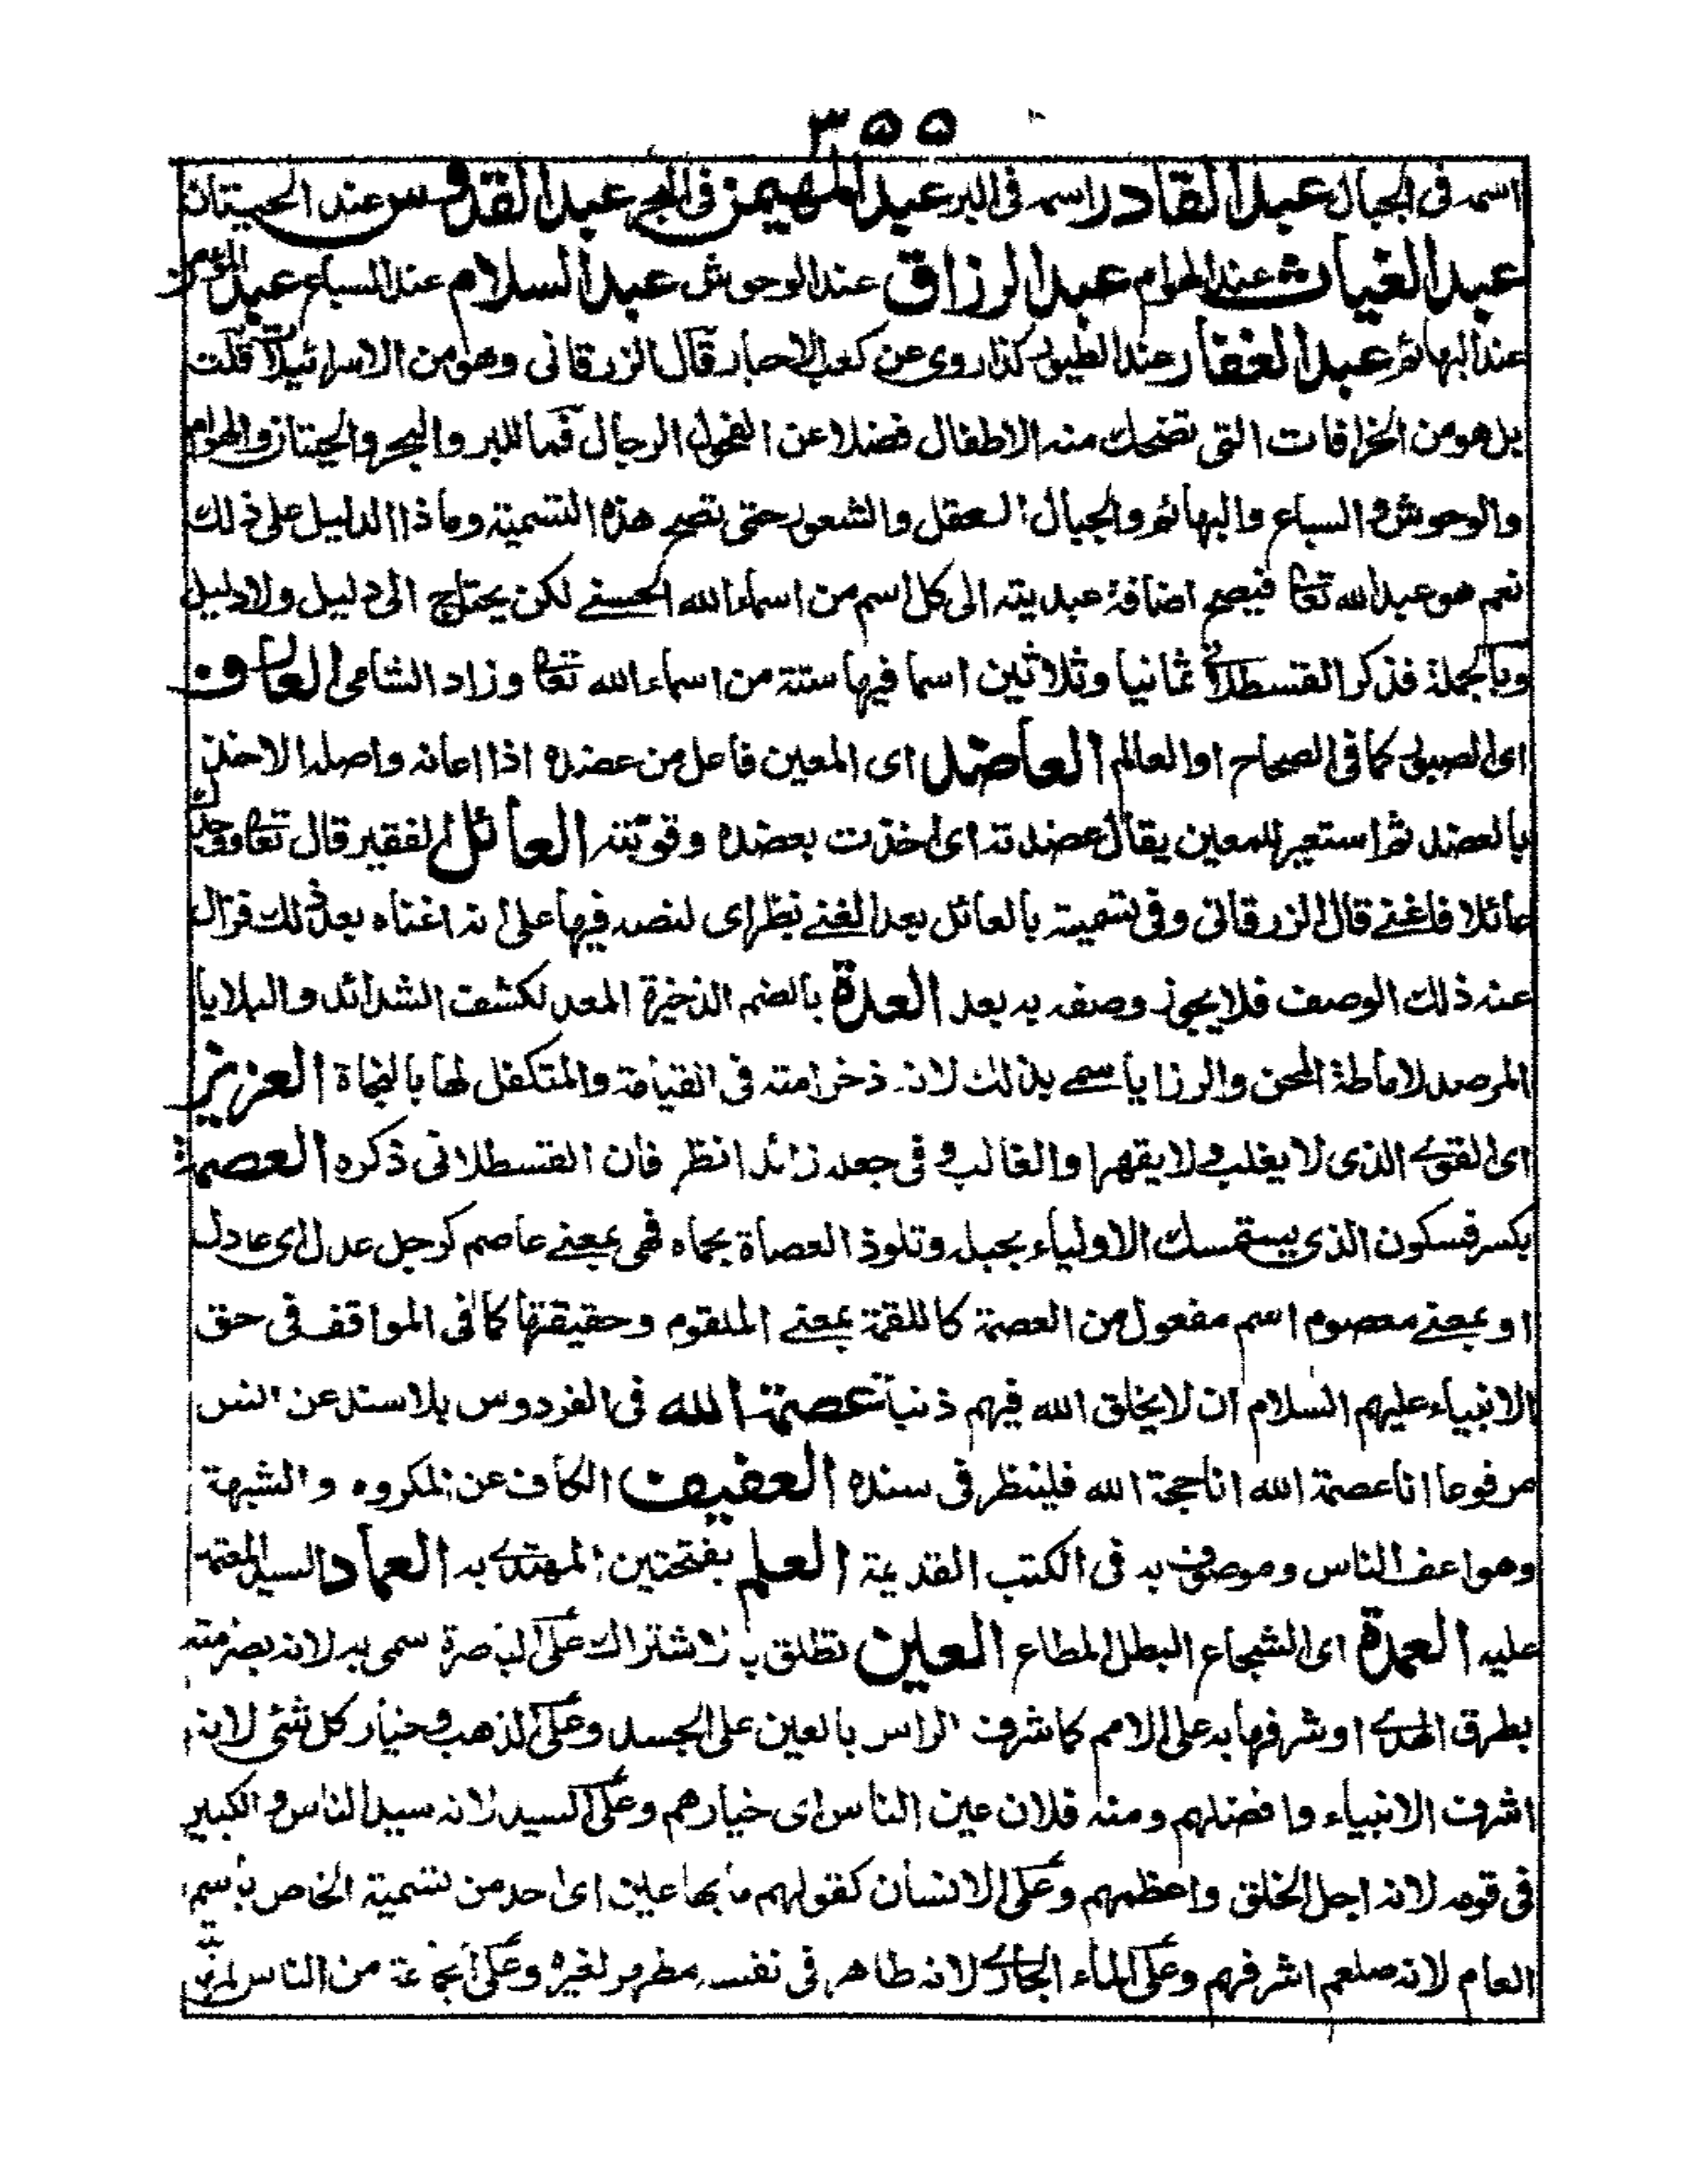 ٣٥٥
اسمه فى الجبال عبد القادر اسمه فى البر عبد المهيمن فى البحر عبد القدوس عند الحيتان
عبد الغياث عند الهوام عبد الرزاق عند الوحوش عبد السلام عند السباع عبد المؤمن
عند البهائم عبد الغفار عند الطيور كذا روى عن كعب الاحبار قال الزرقانى وهو من الاسرائيليات قلت
بل هو من الخرافات التى تضحك منه الاطفال فضلا عن الفحول الرجال فما للبر والبحر والحيتان والهوام
والوحوش والسباع والبهائم والجبال العقل والشعور حتى تصح هذه التسمية وما ذا الدليل على ذلك
نعم هو عبد الله تعا فيصح اضافة عبديته الى كل اسم من اسماء الله الحسنے لكن يحتاج الى دليل ولا دليل
وبالجملة فذكر القسطلانى ثمانيا وثلاثين اسما فيها ستة من اسماء الله تعا وزاد الشامى العارف
اى الصبور كما فى الصحاح او العالم العاضد اى المعين فاعل من عضده اذا اعانه واصله الاخذ
بالعضد ثم استعير للمعين يقال عضدته اى اخذت بعضده وقويته العائل الفقير قال تعا ووجدك
عائلا فاغنے قال الزرقانى وفى تسميته بالعائل بعد الغنے نظر اى لنصه فيها على انه اغناه بعد ذلك فزال
عنه ذلك الوصف فلا يجوز وصفه به بعد العدة بالضم الذخيرة المعد لكشف الشدائد والبلايا
المرصد لاماطة المحن والرزايا سمے بذلك لانه ذخر امته فى القيامة والمتكفل لها بالنجاة العزيز
اى القوے الذى لا يغلب ولا يقهر او الغالب و فى جعله زائد انظر فان القسطلانى ذكره العصمة
بكسر فسكون الذى يستمسك الاولياء بحبله وتلوذ العصاة بحماه فهى بمعنے عاصم كرجل عدل اى عادل
او بمعنے معصوم اسم مفعول من العصمة كاللقمة بمعنے الملقوم وحقيقتها كما فى المواقف فى حق
الانبياء عليهم السلام ان لا يخلق الله فيهم ذنبا عصمة الله فى الفردوس بلا سند عن انس
مرفوعا انا عصمة الله انا حجة الله فلينظر فى سنده العفيف الكاف عن المكروه والشبهة
وهو اعف الناس وموصوف به فى الكتب القديمة العلم بفتحتين المهتدے به العماد السيد المعتمد
عليه العمدة اى الشجاع البطل المطاع العين تطلق بالاشتراك على الباصرة سمى به لانه بصر امته
بطرق الهدے او شرفها به على الامم كما شرف الراس بالعين على الجسد وعلى الذهب وخيار كل شئ لانه
اشرف الانبياء وافضلهم ومنه فلان عين الناس اى خيارهم وعلى السيد لانه سيد الناس والكبير
فى قومه لانه اجل الخلق واعظمهم وعلى الانسان كقولهم ما بها عين اى احد من تسمية الخاص باسم
العام لانه صلعم اشرفهم وعلى الماء الجارے لانه طاهر فى نفسه مطهر لغيره وعلى الجماعة من الناس